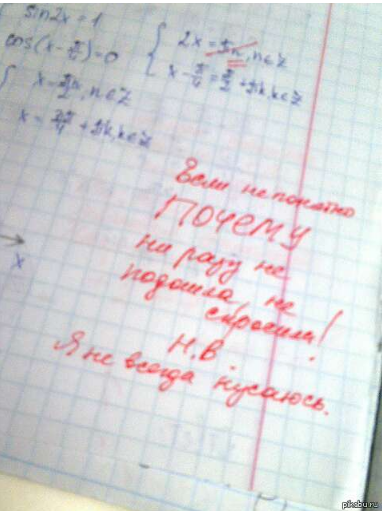 sin2x = 1
cos(x - π/4) = 0
{ 2x = πn, n∈Z
x - π/4 = π/2 + πk, k∈Z
{ x = πn/2, n∈Z
x = 3π/4 + πk, k∈Z
x
Если непонятно
ПОЧЕМУ
ни разу не
подошла, не
спросила!
Н.В.
Я не всегда кусаюсь.
pikabu.ru